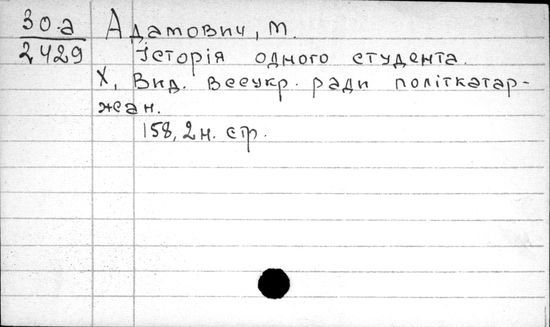 30.а Адамович, М.
2429 Історія одного студента.
Х, Вид. Всеукр. ради політкатар-
жан.
158, 2 н. стр.